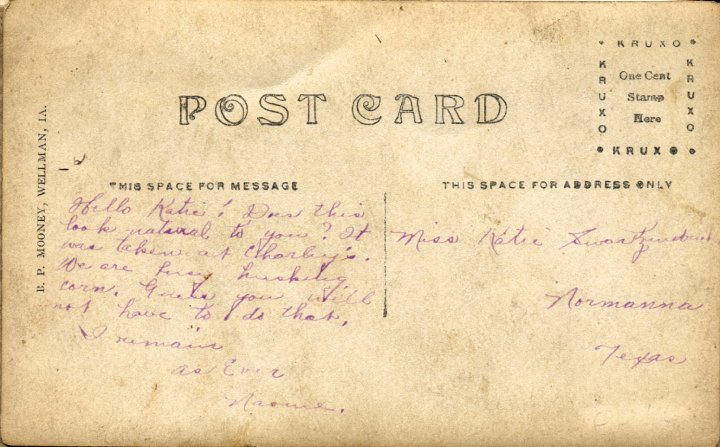 B. P. MOONEY, WELLMAN, IA.
POST CARD
KRUXO
KRUXO
KRUXO
KRUXO
One Cent
Stamp
Here
THIS SPACE FOR MESSAGE
THIS SPACE FOR ADDRESS ONLY
Hello Katie! Does this
look natural to you? It
was taken at Charley's.
We are busy husking
corn. Guess you will
not have to do that.
I remain
as Ever
Naomi.
Miss Katie
Normanna
Texas